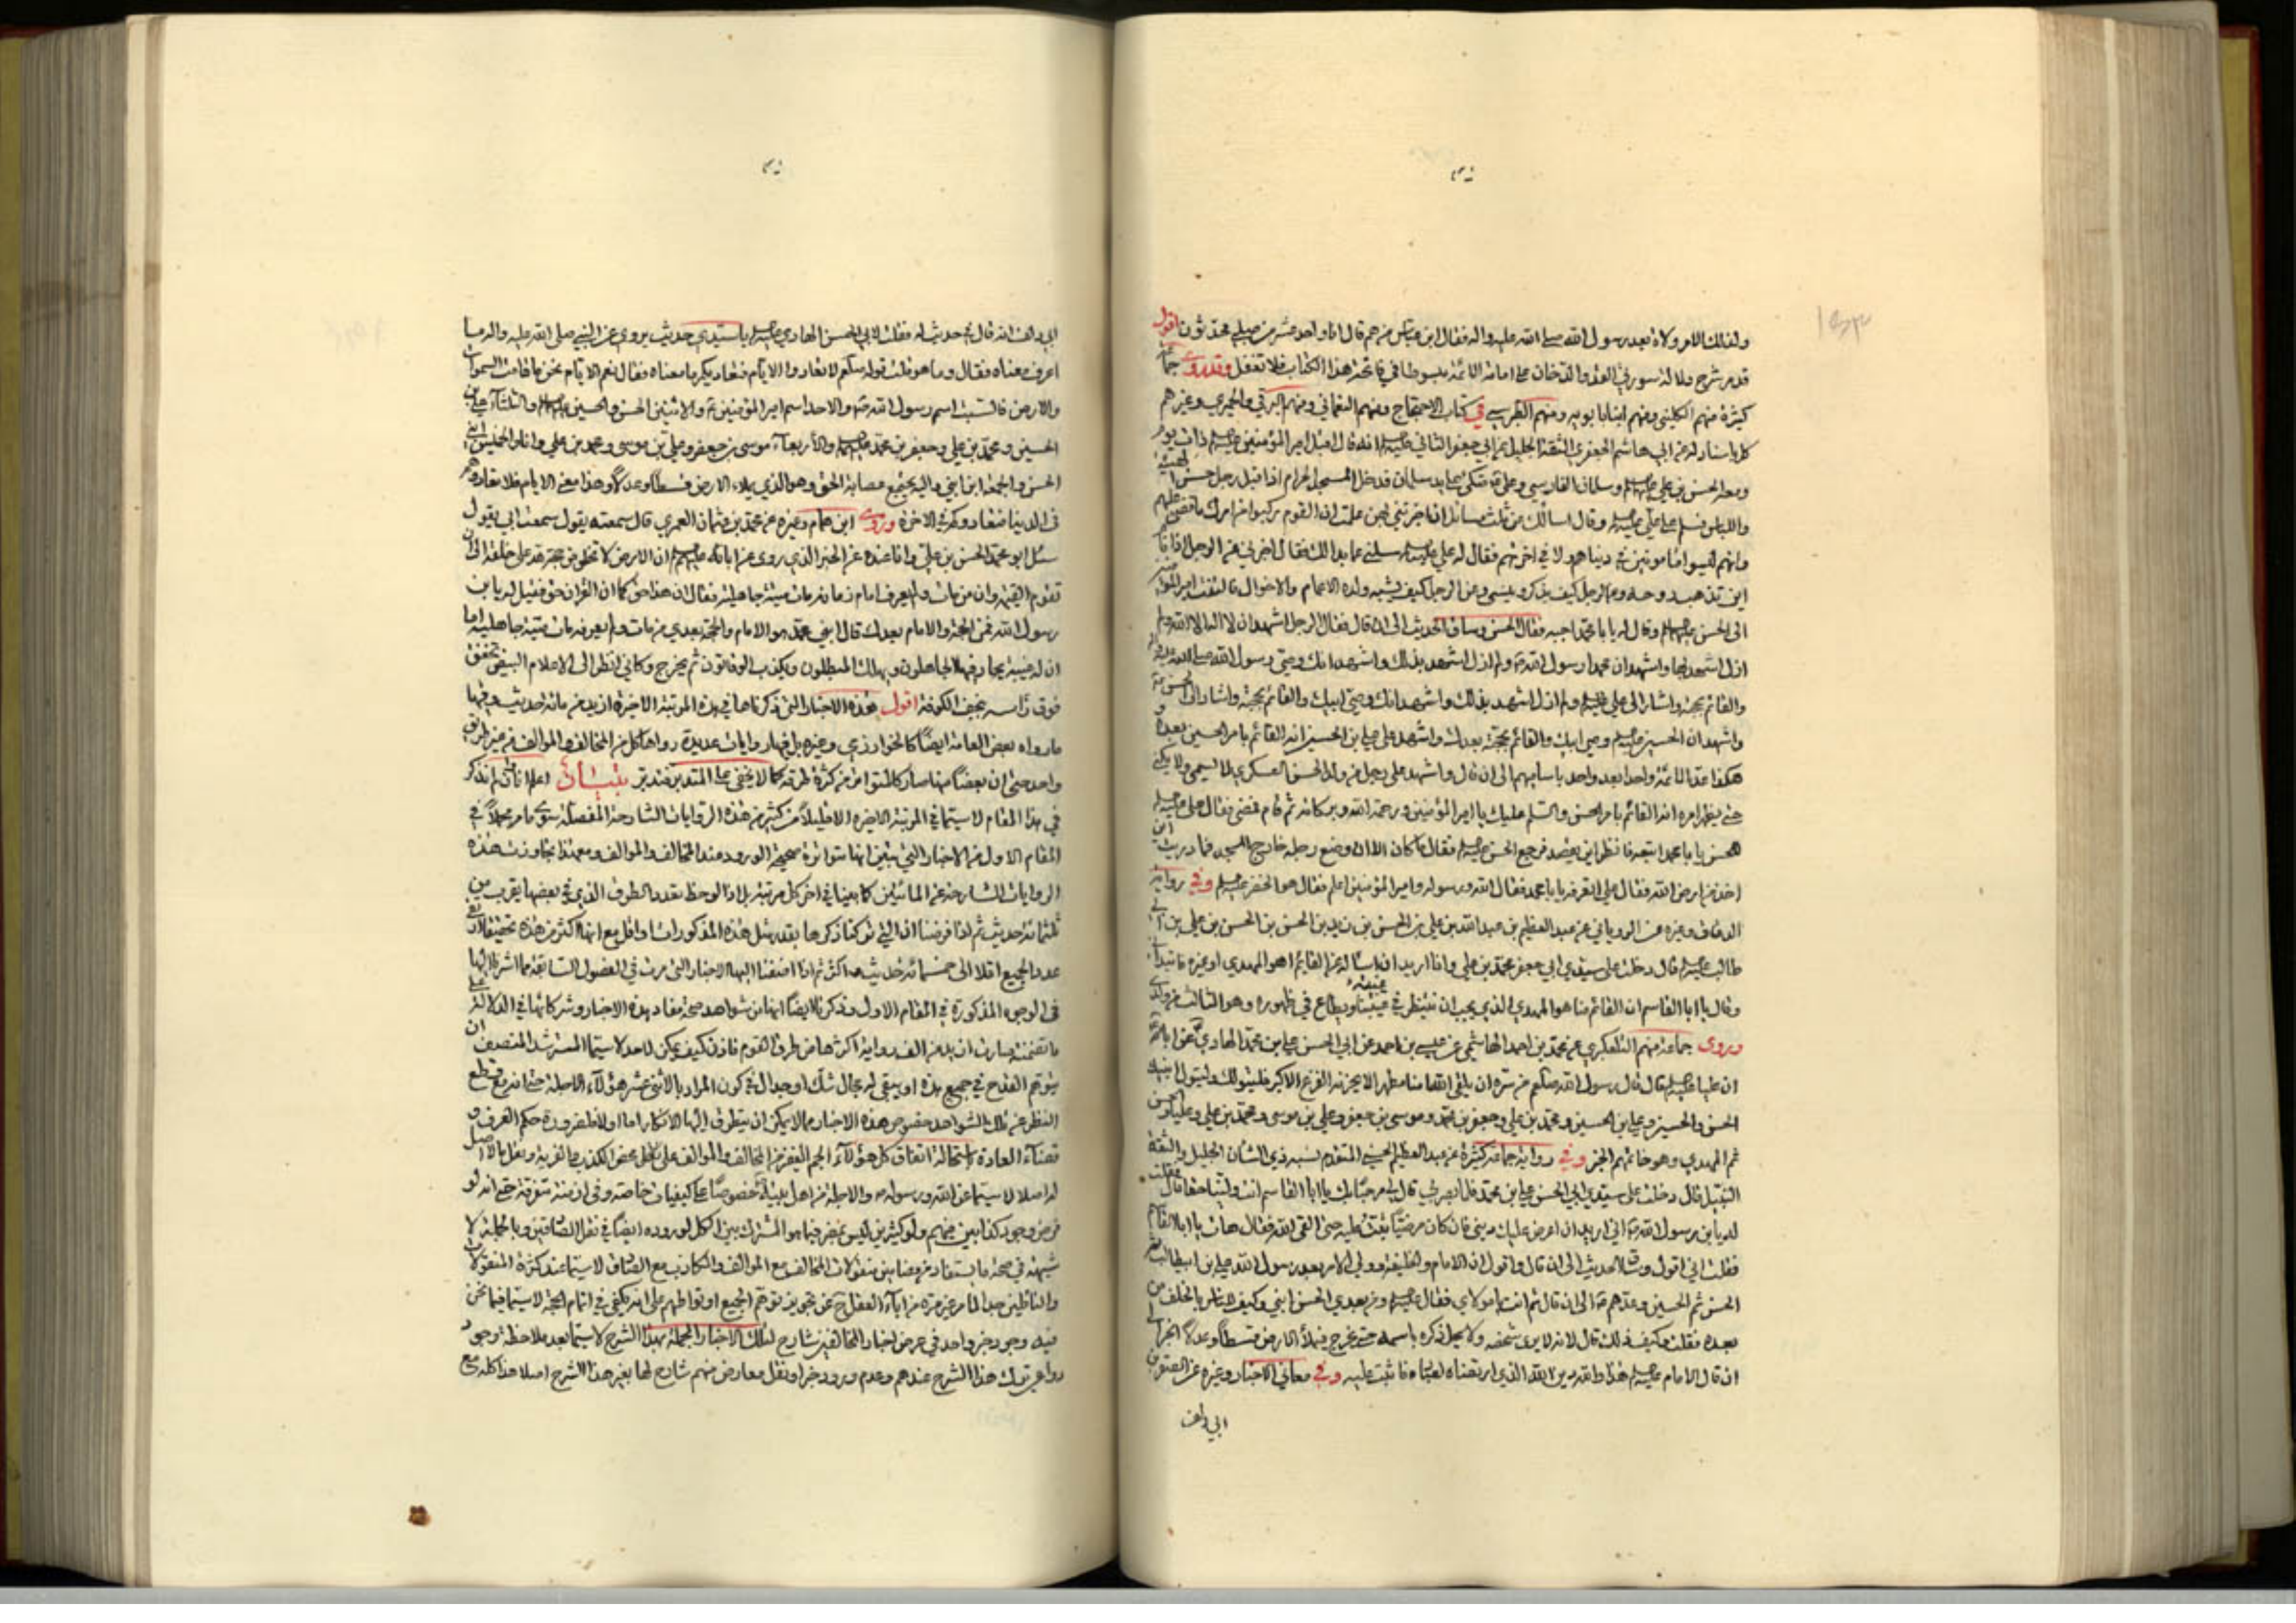 ولذلك الامر ولاة بعد رسول الله صلى الله عليه واله فقال ابن عباس من هم قال انا واحد عشر من صلبي محدثون اقول
قد مر شرح دلالة سورتي القدر والدخان على امامة الائمة مبسوطا في فاتحة هذا الكتاب فلا تغفل وقد روى جماعة
كثيرة منهم الكليني ومنهم ابنا بابويه ومنهم الطبرسي في كتاب الاحتجاج ومنهم النعماني ومنهم البرقي والحميري وغيرهم
كل باسناد له عن ابي هاشم الجعفري الثقة الجليل عن ابي جعفر الثاني عليه السلم انه قال اقبل امير المؤمنين عليه السلم ذات يوم
ومعه الحسن بن علي عليهما السلم وسلمان الفارسي وعلي متكئ على يد سلمان فدخل المسجد الحرام اذ اقبل رجل حسن الهيئة
واللباس فسلم على علي عليه السلم وقال اسألك عن ثلث مسائل ان اخبرتني بهن علمت ان القوم ركبوا من امرك ما قضي عليهم
وانهم ليسوا مأمونين في دنياهم ولا في اخرتهم فقال له علي عليه السلم سلني عما بدا لك فقال اخبرني عن الرجل اذا نام
اين تذهب روحه وعن الرجل كيف يذكر وينسى وعن الرجل كيف يشبه ولده الاعمام والاخوال فالتفت امير المؤمنين
الى الحسن عليهما السلم وقال له يا با محمد اجبه فقال الحسن وساق الحديث الى ان قال فقال الرجل اشهد ان لا اله الا الله ولم
ازل اشهد بها واشهد ان محمدا رسول الله ولم ازل اشهد بذلك واشهد انك وصي رسول الله صلى الله عليه واله
والقائم بحجته واشار الى علي عليه السلم ولم ازل اشهد بذلك واشهد انك وصي ابيك والقائم بحجته واشار الى الحسن
واشهد ان الحسين عليه السلم وصي ابيك والقائم بحجته بعدك واشهد على علي بن الحسين انه القائم بامر الحسين بعده و
هكذا عد الائمة واحدا بعد واحد باسمائهم الى ان قال واشهد على رجل من ولد الحسن العسكري لا يسمى ولا يكنى
حتى يظهر امره انه القائم بامر الحسن والسلم عليك يا امير المؤمنين ورحمة الله وبركاته ثم قام فمضى فقال علي عليه السلم
للحسن يا با محمد اتبعه فانظر اين يقصد فرجع الحسن عليه السلم فقال ما كان الا ان وضع رجله خارج المسجد فما دريت اين
اخذ من ارض الله فقال علي اتعرفه يا با محمد فقال الله ورسوله وامير المؤمنين اعلم فقال هو الخضر عليه السلم وفي رواية
الدقاق وغيره عن الروياني عن عبد العظيم بن عبد الله بن علي بن الحسن بن زيد بن الحسن بن علي بن ابي
طالب عليه السلم قال دخلت على سيدي ابي جعفر محمد بن علي وانا اريد ان اسأله عن القائم اهو المهدي او غيره فابتدأني
وقال يا ابا القاسم ان القائم منا هو المهدي الذي يجب ان ينتظر في غيبته ويطاع في ظهوره وهو الثالث من ولدي
وروى جماعة منهم التلعكبري عن محمد بن احمد الهاشمي عن عيسى بن احمد عن ابي الحسن علي بن محمد الهادي عن ابائه
ان عليا عليه السلم قال قال رسول الله صلعم من سره ان يلقى الله امنا مطهرا لا يحزنه الفزع الاكبر فليتولك وليتول ابنيك
الحسن والحسين وعلي بن الحسين ومحمد بن علي وجعفر بن محمد وموسى بن جعفر وعلي بن موسى ومحمد بن علي وعليا والحسن
ثم المهدي وهو خاتمهم الخبر وفي رواية جماعة كثيرة عن عبد العظيم الحسني المتقدم نسبه ذي الشأن الجليل والثقة
النبيل قال دخلت على سيدي ابي الحسن علي بن محمد فلما بصر بي قال لي مرحبا بك يا ابا القاسم انت ولينا حقا قال فقلت
له يا بن رسول الله اني اريد ان اعرض عليك ديني فان كان مرضيا ثبت عليه حتى القى الله فقال هات يا ابا القاسم
فقلت اني اقول وساق الحديث الى ان قال واقول ان الامام والخليفة وولي الامر بعد رسول الله علي بن ابيطالب ثم
الحسن ثم الحسين وعدهم الى ان قال ثم انت يا مولاي فقال عليه السلم ومن بعدي الحسن ابني وكيف للناس بالخلف من
بعده فقلت وكيف ذلك قال لانه لا يرى شخصه ولا يحل ذكره باسمه حتى يخرج فيملأ الارض قسطا وعدلا الخبر الى
ان قال الامام عليه السلم هذا والله دين الله الذي ارتضاه لعباده فاثبت عليه وفي معاني الاخبار وغيره عن الصقر بن
ابي دلف
ابي دلف انه قال في حديث له فقلت لابي الحسن الهادي عليه السلم يا سيدي حديث يروى عن النبي صلى الله عليه واله ما
اعرف معناه فقال وما هو فقلت قوله صلعم لا تعادوا الايام فتعاديكم ما معناه فقال نعم الايام نحن ما قامت السموات
والارض فالسبت اسم رسول الله والاحد اسم امير المؤمنين والاثنين الحسن والحسين عليهما السلم والثلثاء علي بن
الحسين ومحمد بن علي وجعفر بن محمد عليهم السلم والاربعاء موسى بن جعفر وعلي بن موسى ومحمد بن علي وانا والخميس ابني
الحسن والجمعة ابن ابني واليه يجتمع عصابة الحق وهو الذي يملاء الارض قسطا وعدلا وهذا معنى الايام فلا تعادوهم
في الدنيا فتعادوكم في الاخرة وروى ابن همام وغيره عن محمد بن عثمان العمري قال سمعته يقول سمعت ابي يقول
سئل ابو محمد الحسن بن علي وانا عنده عن الخبر الذي روى عن ابائه عليهم السلم ان الارض لا تخلو من حجة لله على خلقه الى ان
تقوم القيمة وان من مات ولم يعرف امام زمانه مات ميتة جاهلية فقال ان هذا حق كما ان النهار حق فقيل له يا بن
رسول الله فمن الحجة والامام بعدك قال ابني محمد هو الامام والحجة بعدي من مات ولم يعرفه مات ميتة جاهلية اما
ان له غيبة يحار فيها الجاهلون ويهلك المبطلون ويكذب الوقاتون ثم يخرج وكاني انظر الى الاعلام البيض تخفق
فوق رأسه بنجف الكوفة اقول هذه الاخبار التي ذكرناها في هذه المرتبة الاخيرة ازيد من مائة حديث وفيها
ما رواه بعض العامة ايضا كالخوارزمي وغيره بل فيها روايات عديدة رواها كل من المخالف والموالف من غير طريق
واحد حتى ان بعضا منها صار كالمتواتر من كثرة طرقه كما لا يخفى على المتدبر فتدبر تبيان اعلم انا وان لم نذكر
في هذا المقام لا سيما في المرتبة الاخيرة الا قليلا من كثير من هذه الروايات الشارحة المفصلة سوى ما مر مجملا في
المقام الاول من الاخبار التي تبين انها متواترة صحيحة الورود عند المخالف والموالف ومع هذا تجاوزت هذه
الروايات الشارحة عن المائتين كما بينا في اخر كل مرتبة بل اذا لوحظ تعدد الطرق الذي في بعضها يقرب من
ثلثمائة حديث ثم اذا فرضنا ان التي تركنا ذكرها بقدر مثل هذه المذكورات او اقل مع انها اكثر من هذه تحقيقا
عدد الجميع اقلا الى خمسمائة حديث بل اكثر ثم اذا اضفنا اليها الاخبار التي مرت في الفصول السابقة مما اشرنا اليها
في الوجوه المذكورة في المقام الاول وذكرنا ايضا انها من شواهد صحة مفاد هذه الاخبار وشركائها في الدلالة على
ما تضمنته صارت ازيد من الف رواية اكثرها من طرق القوم فاذن كيف يمكن لاحد لا سيما المسترشد المنصف ان
يتوهم القدح في جميع هذه او يبقى له مجال شك او جدال في كون المراد بالاثنى عشر هؤلاء الاجلة حتى انه مع قطع
النظر عن تلك الشواهد خصوص هذه الاخبار مما لا يمكن ان يتطرق اليها الانكار اما اولا فلضرورة حكم العرف و
قضاء العادة باستحالة اتفاق كل هؤلاء الجم الغفير من المخالف والموالف على نقل محض الكذب والفرية ونقل ما لا اصل
له اصلا لا سيما عن الله ورسوله والاجلة من اهل بيته خصوصا على كيفيات خاصة وفي ازمنة متفرقة حتى انه لو
فرض وجود كذابين فيهم ولو كثيرين ليس بمضر فيما هو المشترك بين الكل لوروده ايضا في نقل الصادقين وبالجملة لا
شبهة في صحة ما يستفاد من مضامين منقولات المخالف مع الموالف والكاذب مع الصادق لا سيما عند كثرة المنقولات
والناقلين جدا لما مر غير مرة من اباء العقل عن تجويز توهم الجميع او تواطئهم على انه يكفي في اتمام الحجة لا سيما فيما نحن
فيه وجود خبر واحد في عرض اخبار المخالفين شارح لتلك الاخبار المجملة بهذا الشرح لا سيما بعد ملاحظة وجود
دواعي ترك هذا الشرح عندهم وعدم ورود خبر او نقل معارض منهم شارح لها بغير هذا الشرح اصلا هذا كله مع